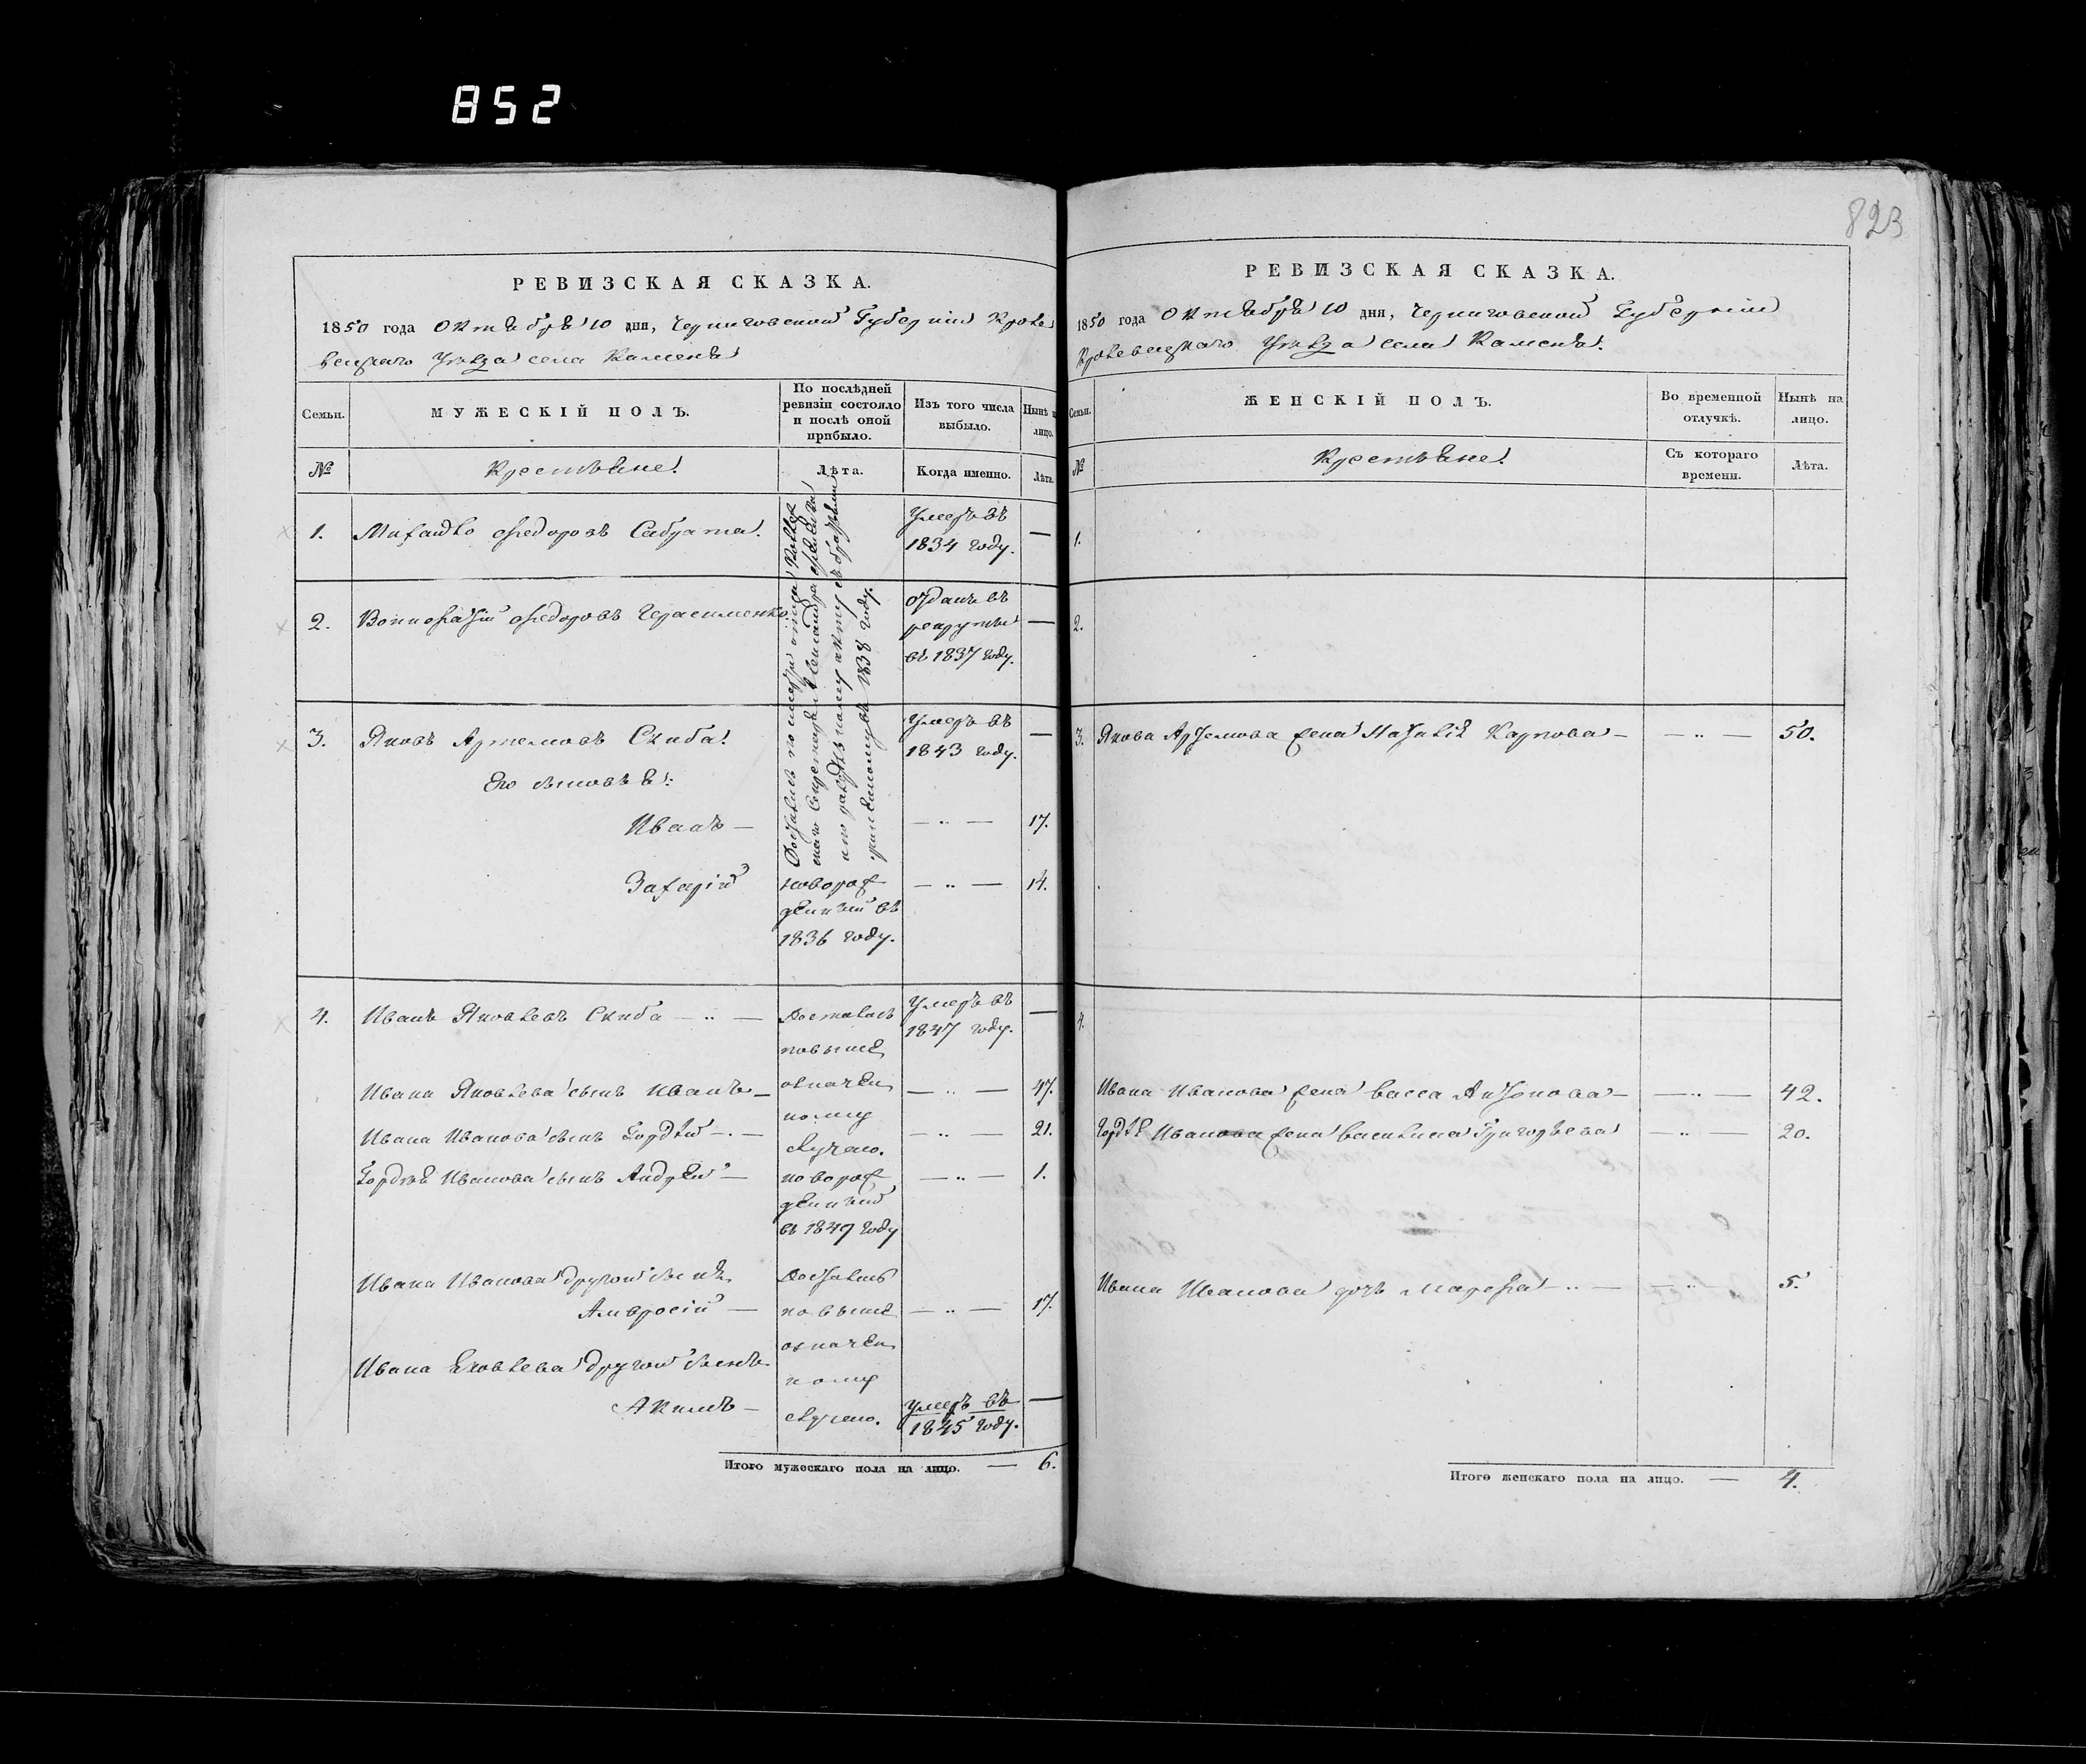 852
823
РЕВИЗСКАЯ СКАЗКА.
1850 года Октября 10 дня, Черниговской Губерніи Кроле
вецкаго Уѣзда села Каменя
Семьи.
МУЖЕСКІЙ ПОЛЪ.
По послѣдней
ревизіи состояло
и послѣ оной
прибыло.
Изъ того числа
выбыло.
Нынѣ н
лицо.
№
Крестьяне.
Лѣта.
Когда именно.
Лѣта.
1.
Михайло Федоровъ
Умеръ въ
1834 году.
—
2.
Федоровъ Герасименко.
отданъ въ
рекруты
въ 1837 году.
—
Достались по смерти отца
въ 1838 году.
3.
Яковъ Артемовъ Скиба.
Умеръ въ
1843 году.
—
Его сыновья:
Иванъ —
— „ —
17.
Захарій
новорож
денный въ
1836 году.
— „ —
14.
4.
Иванъ Яковлевъ Скиба — „ —
Достались
повыше
означен
ному
случаю.
Умеръ въ
1847 году.
—
Ивана Яковлева сынъ Иванъ —
— „ —
47.
Ивана Иванова сынъ Гордѣй — . —
— „ —
21.
Гордѣя Иванова сынъ Андрей —
новорож
денный
въ 1849 году
— „ —
1.
Ивана Иванова другой сынъ
Амвросій —
Достались
повыше
означен
ному
случаю.
— „ —
17.
Ивана Яковлева другой сынъ
Акимъ —
Умеръ въ
1845 году.
—
Итого мужескаго пола на лицо. — 6.
РЕВИЗСКАЯ СКАЗКА.
1850 года Октября 10 дня, Черниговской Губерніи
Кролевецкаго Уѣзда села Каменя.
Семьи.
ЖЕНСКІЙ ПОЛЪ.
Во временной
отлучкѣ.
Нынѣ на
лицо.
№
Крестьяне.
Съ котораго
времени.
Лѣта.
1.
2.
3.
Якова Артемова жена Наталія Карпова —
— „ —
50.
4.
Ивана Иванова жена Васса Антонова —
— „ —
42.
Гордѣя Иванова жена Василиса Григорьева
— „ —
20.
Ивана Иванова дочь Марфа — „ —
— „ —
5.
Итого женскаго пола на лицо. — 4.